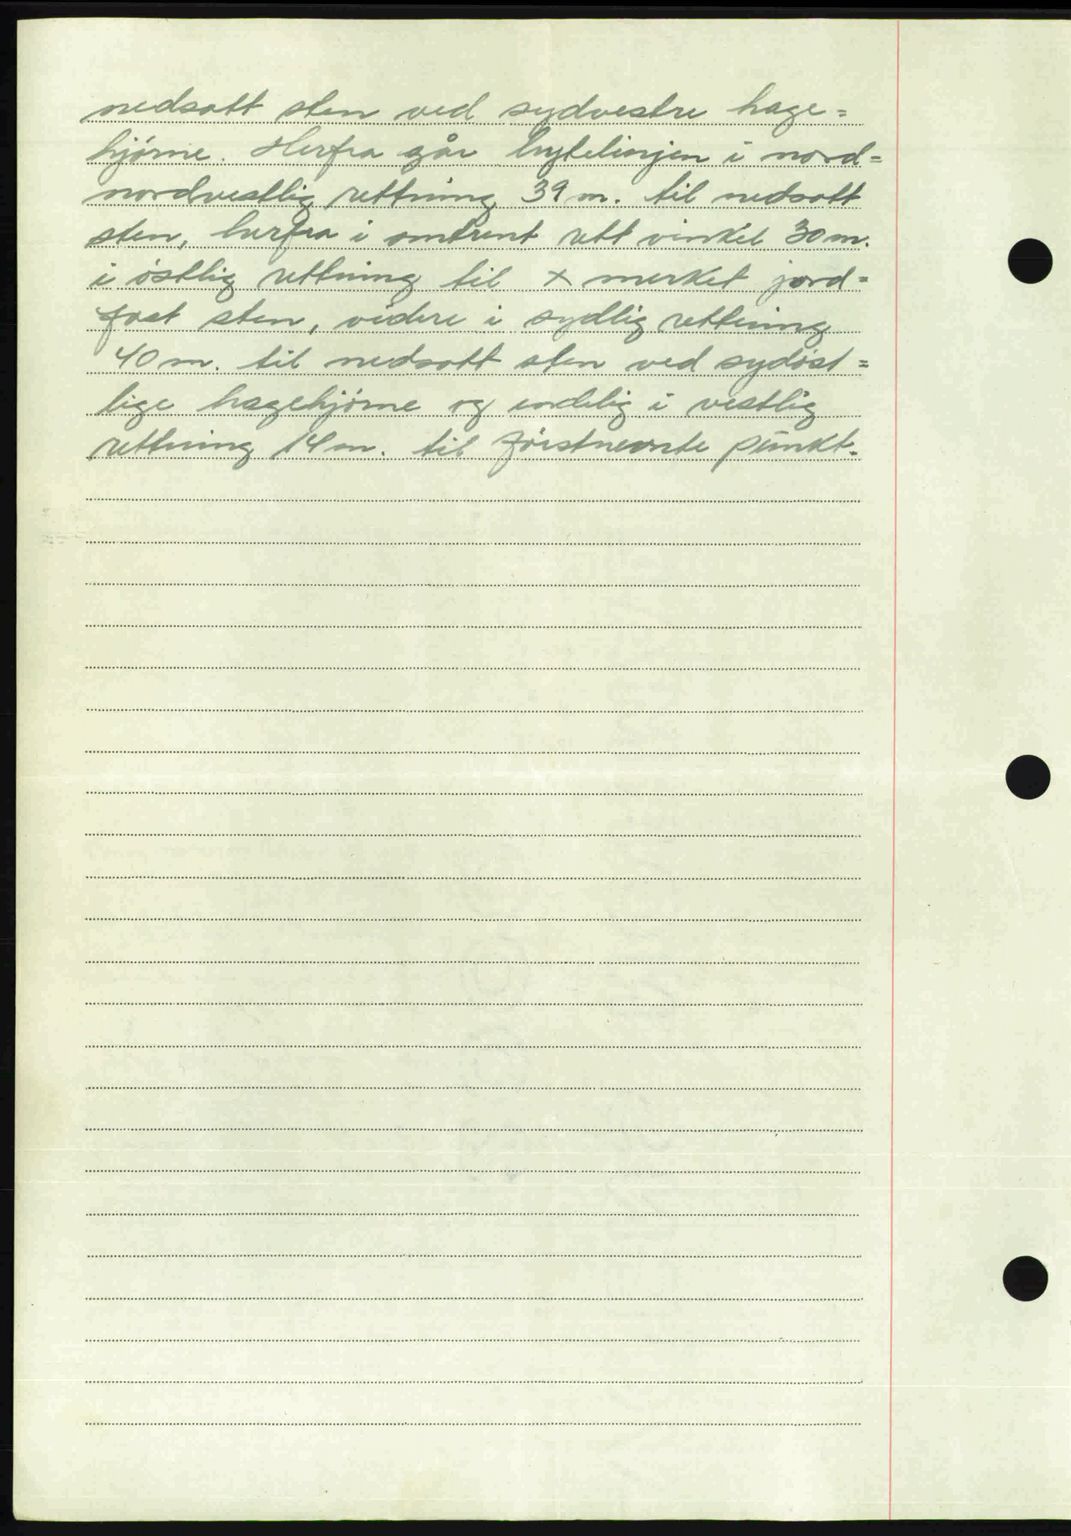 nedsatt sten ved sydvestre hage=
hjørne. Herfra går bytelinjen i nord=
nordvestlig rettning 39 m. til nedsatt
sten, herfra i omtrent rett vinkel 30 m.
i østlig rettning til x merket jord=
fast sten, videre i sydlig rettning
40 m. til nedsatt sten ved sydøst=
lige hagehjørne og endelig i vestlig
rettning 14 m. til førstnevnte punkt.